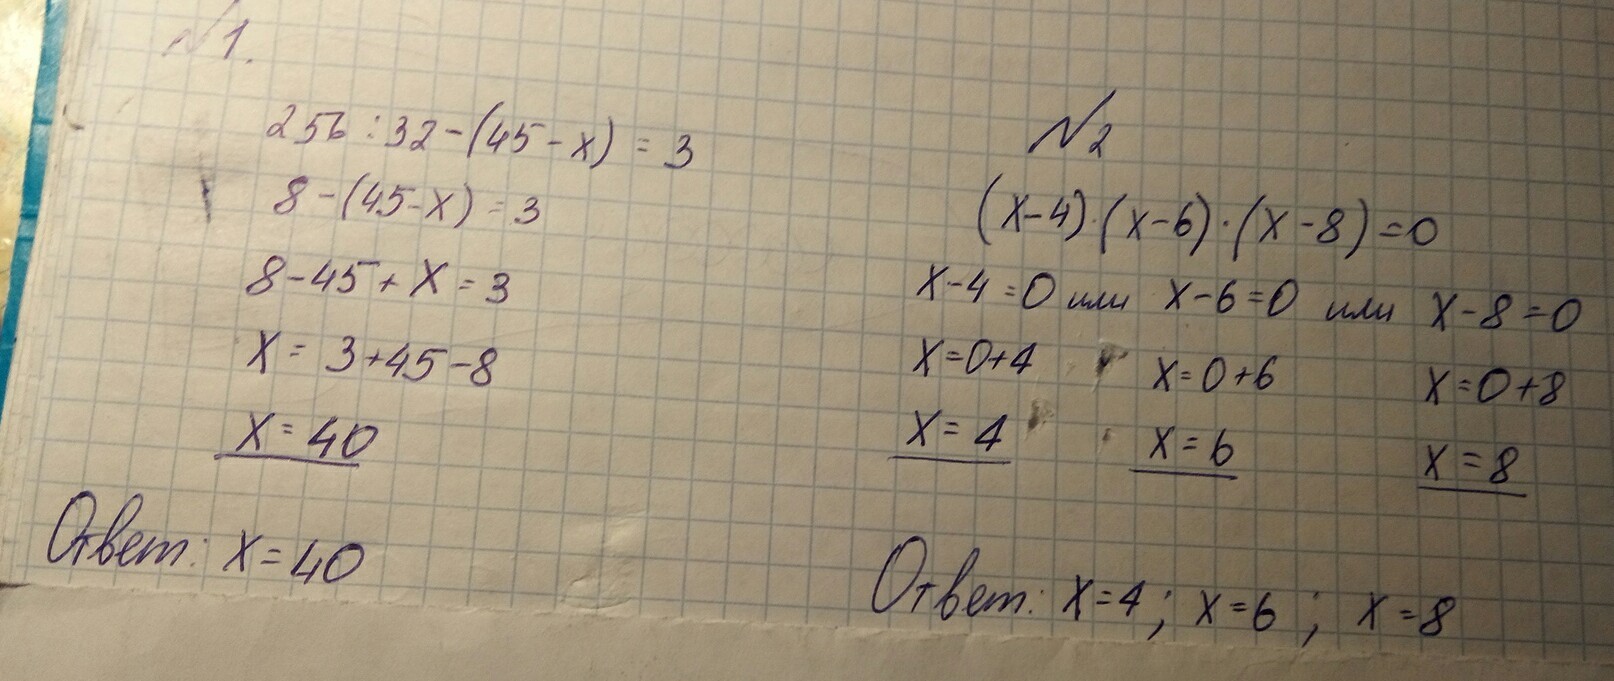 №1.
256 : 32 - (45 - x) = 3
8 - (45 - x) = 3
8 - 45 + x = 3
x = 3 + 45 - 8
x = 40
Ответ: x = 40
№2
(x - 4) · (x - 6) · (x - 8) = 0
x - 4 = 0 или x - 6 = 0 или x - 8 = 0
x = 0 + 4 x = 0 + 6 x = 0 + 8
x = 4 x = 6 x = 8
Ответ: x = 4; x = 6; x = 8